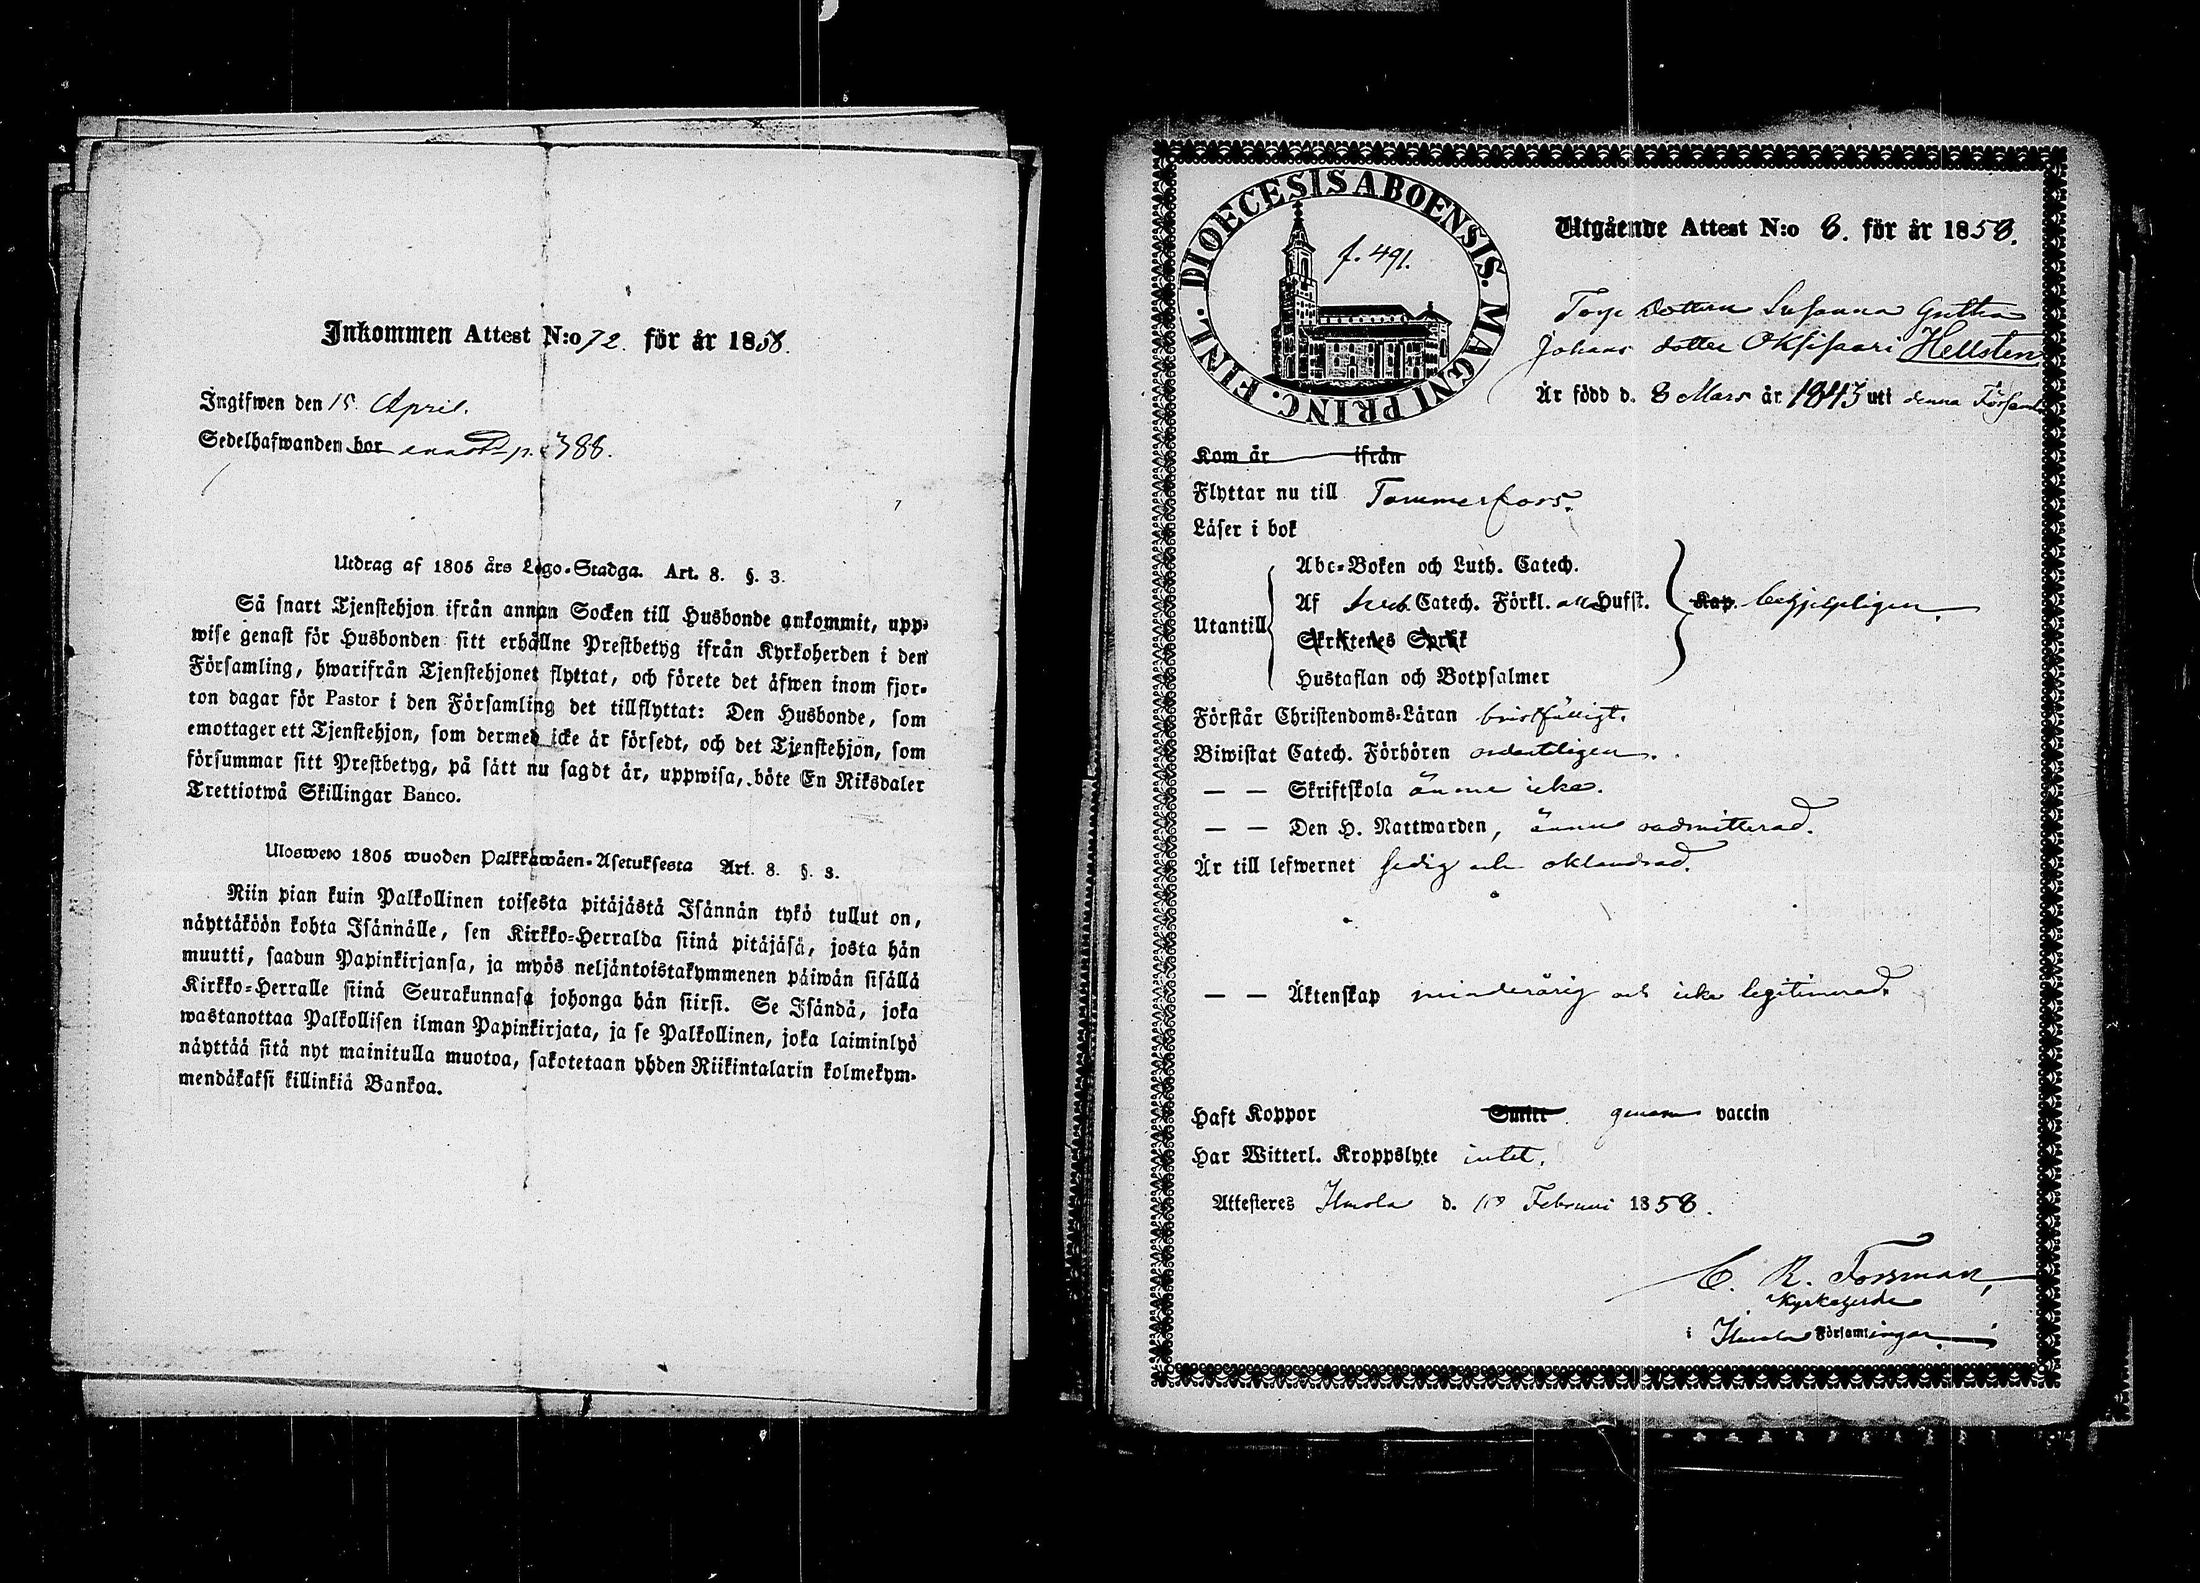 Inkommen Attest N:o 72. för år 1858.
Ingifwen den 15. April.
Sedelhafwanden bor p. 388.
Utdrag af 1805 års Lego-Stadga. Art. 8. §. 3.
Så snart Tjenstehjon ifrån annan Socken till Husbonde ankommit, upp-
wise genast för Husbonden sitt erhållne Prestbetyg ifrån Kyrkoherden i den
Församling, hwarifrån Tjenstehjonet flyttat, och förete det äfwen inom fjor-
ton dagar för Pastor i den Församling det tillflyttat: Den Husbonde, som
emottager ett Tjenstehjon, som dermed icke är försedt, och det Tjenstehjon, som
försummar sitt Prestbetyg, på sätt nu sagdt är, uppwisa, böte En Riksdaler
Trettiotwå Skillingar Banco.
Ulosweto 1805 wuoden Palkkawäen-Asetuksesta Art. 8. §. 3.
Niin pian kuin Palkollinen toisesta pitäjästä Isännän tykö tullut on,
näyttäköön kohta Isännälle, sen Kirkko-Herralda siinä pitäjäsä, josta hän
muutti, saadun Papinkirjansa, ja myös neljäntoistakymmenen päiwän sisällä
Kirkko-Herralle siinä Seurakunnasa johonga hän siirsi. Se Isändä, joka
wastanottaa Palkollisen ilman Papinkirjata, ja se Palkollinen, joka laiminlyö
näyttää sitä nyt mainitulla muotoa, sakotetaan yhden Riikintalarin kolmekym-
mendäkaksi killinkiä Bankoa.
DIOECESIS ABOENSIS. MAGNI PRINC. FINL.
f. 491.
Utgående Attest N:o 8. för år 1858.
Torp Dottern Susanna Gustha
Johans dotter Oksisaari Hellsten
Är född d. 8 Mars år 1843 uti denna Församl
Kom år ifrån
Flyttar nu till Tammerfors.
Läser i bok
Utantill
Abc-Boken och Luth. Catech.
Af Sveb. Catech. Förkl. och Husst.
Skriftenes Språk
Hustaflan och Botpsalmer
Kap. behjelpligen.
Förstår Christendoms-Läran bristfälligt.
Biwistat Catech. Förhören ordentligen.
— — Skriftskola ännu icke.
— — Den H. Nattwarden, ännu oadmitterad.
Är till lefwernet sedig och oklandrad.
— — Äktenskap minderårig och icke legitimerad.
Haft Koppor Smitt. genom vaccin
Har Witterl. Kroppslyte intet.
Attesteres Ilmola d. Februari 1858.
C. R. Forsman,
Kyrkoherde
i Ilmola Församlingar.